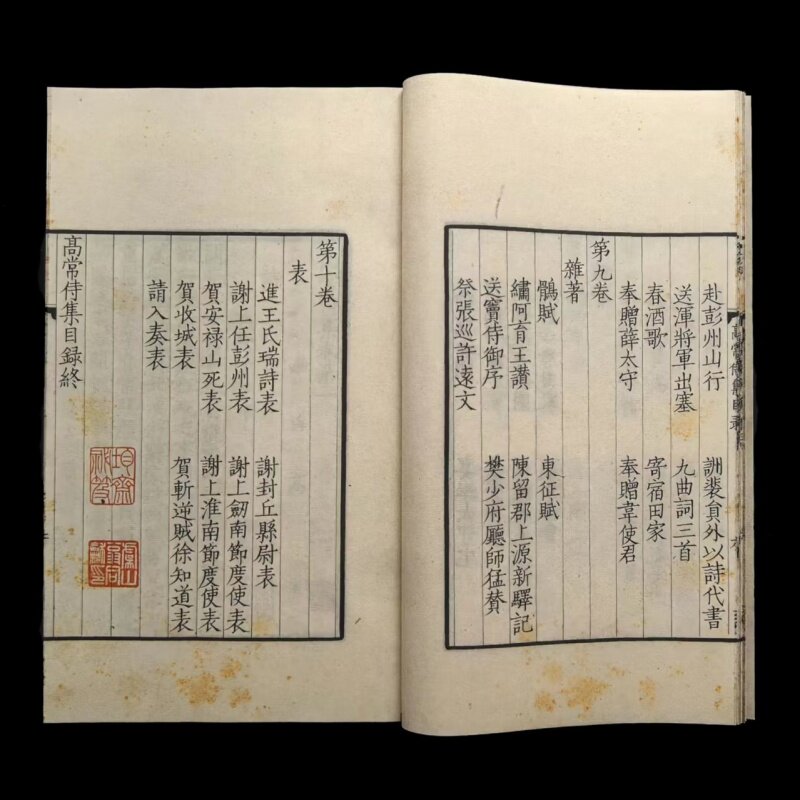 赴彭州山行
詶裴員外以詩代書
送渾將軍出塞
九曲詞三首
春酒歌
寄宿田家
奉贈薛太守
奉贈韋使君
第九卷
雜著
鶻賦
東征賦
繡阿育王讃
陳留郡上源新驛記
送竇侍御序
樊少府廳師猛賛
祭張巡許遠文
第十卷
表
進王氏瑞詩表
謝封丘縣尉表
謝上任彭州表
謝上劒南節度使表
賀安祿山死表
謝上淮南節度使表
賀收城表
賀斬逆賊徐知道表
請入奏表
髙常侍集目録終